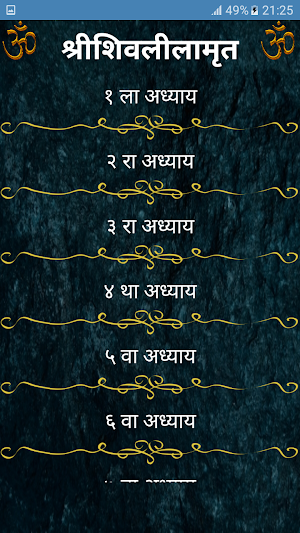 49% 21:25
श्रीशिवलीलामृत
१ ला अध्याय
२ रा अध्याय
३ रा अध्याय
४ था अध्याय
५ वा अध्याय
६ वा अध्याय